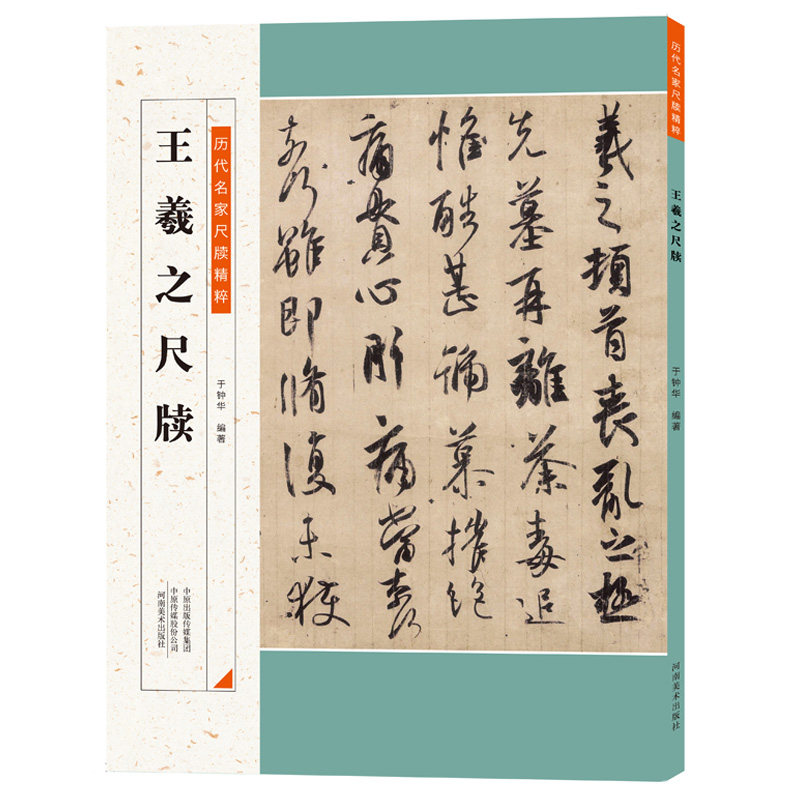 王羲之尺牍
历代名家尺牍精粹
于钟华 编著
中原出版传媒集团
中原传媒股份公司
河南美术出版社
羲之頓首喪亂之極
先墓再離荼毒追
惟酷甚號慕摧絕
痛貫心肝痛當奈何
奈何雖即脩復未獲
历代名家尺牍精粹
王羲之尺牍
于钟华 编著
河南美术出版社